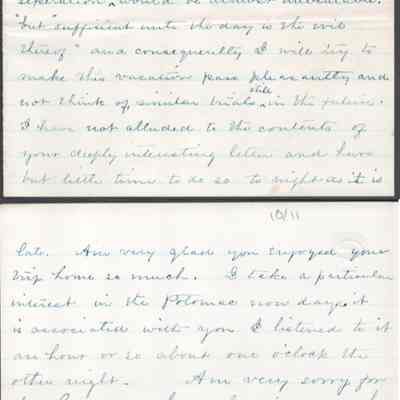 separation, would be almost unbearable.
"but "sufficient unto the day is the evil
thereof" and consequently I will try to
make this vacation pass pleasantly and
not think of similar trials still in the future.
I have not alluded to the contents of
your deeply interesting letter and have
but little time to do so to night as it is
10/11
late. Am very glad you enjoyed your
trip home so much. I take a particular
interest in the Potomac now days, it
is associated with you I listened to it
an hour or so about one o'clock the
other night. Am very sorry for